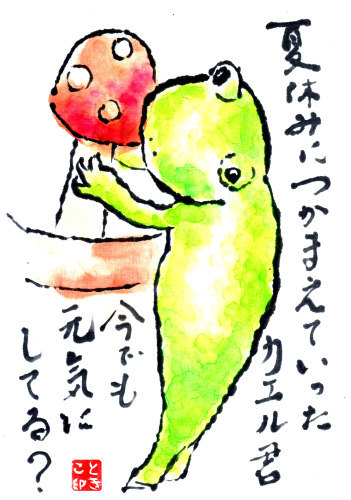 夏休みにつかまえていった
カエル君
今でも
元気に
してる?
とき
こ印